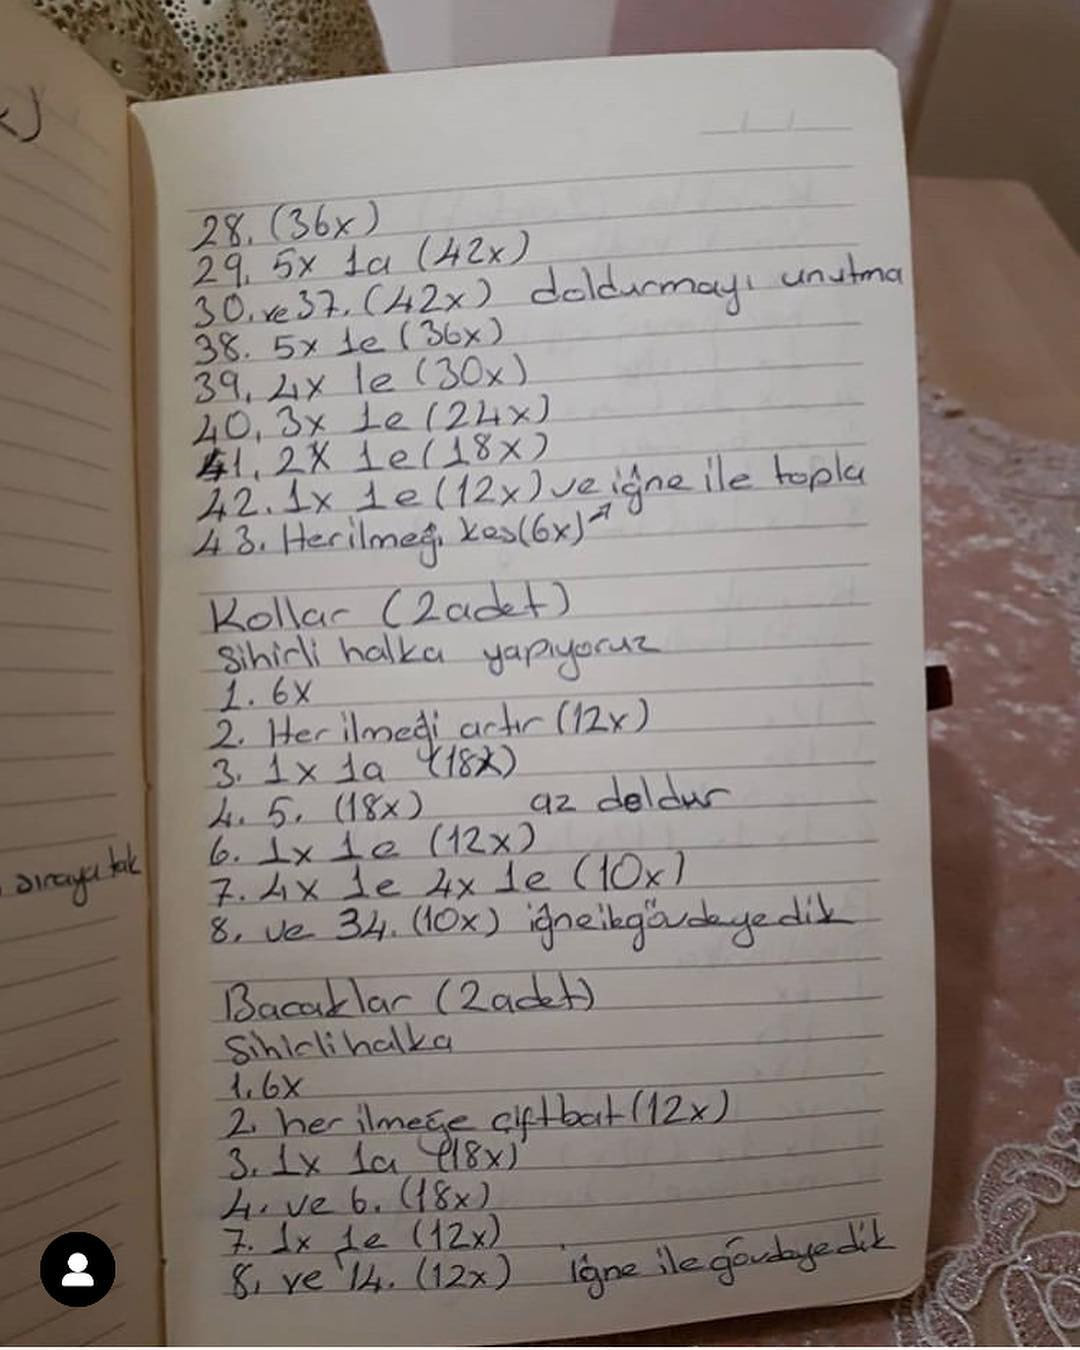 28. (36x)
29. 5x 1a (42x)
30. ve 37. (42x) doldurmayı unutma
38. 5x 1e (36x)
39. 4x 1e (30x)
40. 3x 1e (24x)
41. 2x 1e (18x)
42. 1x 1e (12x) ve iğne ile topla
43. Her ilmeği kes (6x)
Kollar (2 adet)
Sihirli halka yapıyoruz
1. 6x
2. Her ilmeği artır (12x)
3. 1x 1a (18x)
4. 5. (18x) az doldur
6. 1x 1e (12x)
sıraya tak
7. 4x 1e 4x 1e (10x)
8. ve 34. (10x) iğne ile gövdeye dik
Bacaklar (2 adet)
Sihirli halka
1. 6x
2. her ilmeğe çift bat (12x)
3. 1x 1a (18x)
4. ve 6. (18x)
7. 1x 1e (12x)
8. ve 14. (12x) iğne ile gövdeye dik